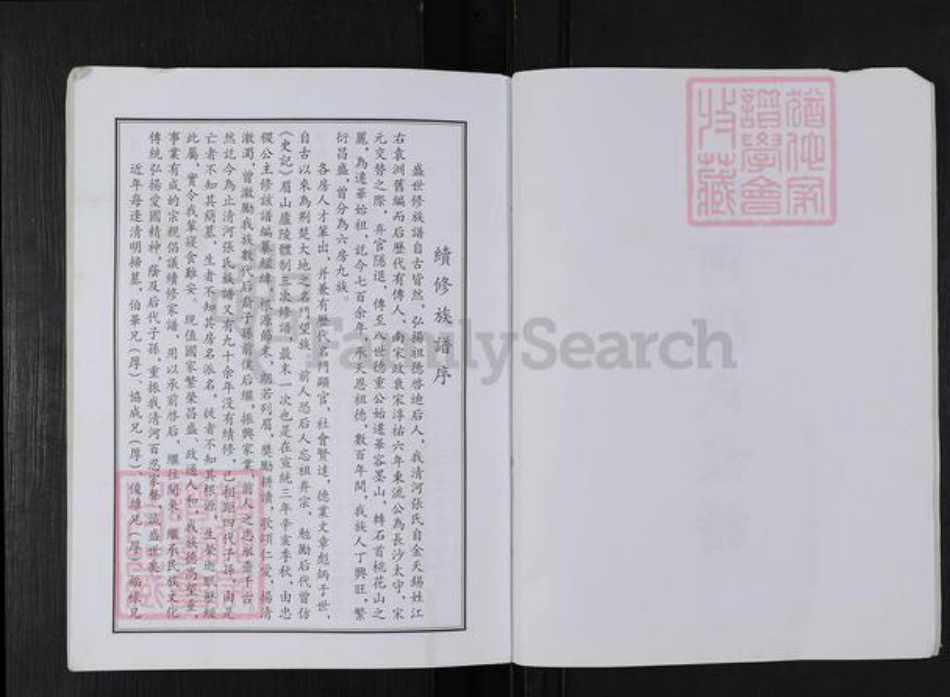 續修族譜序
盛世修族譜自古皆然，弘揚祖德啓迪后人，我清河張氏自金天錫姓江
右袁洲舊編而后歷代有傳人，南宋政衰宋淳祐六年東流公為長沙太守，宋
元交替之際，弃官隱退，傳至八世德重公始遷華容墨山，轉石首桃花山之
麓，為遷華始祖，訖今七百余年，承天恩祖德，數百年間，我族人丁興旺，繁
衍昌盛，曾分為六房九族。
各房人才輩出，并兼有歷代名門顯官，社會賢達，德業文章彪炳于世，
自古以來為荆楚大地之名門望族，前人恐后人忘祖弃宗，勉勵后代曾仿
《史記》眉山廬陵體制三次修譜，最末一次也是在宣統三年辛亥季秋，由忠
稷公主修該譜編纂經緯，溯源歸來，朗若列眉，獎勵耕讀，歌頌仁愛，揚清
激濁，曾激勵我族數代后裔子孫前僕后繼，振興家業，前人之志永垂千古
然訖今為止清河張氏族譜又有九十余年没有續修，已相距四代子孫，由是
亡者不知其簡墓，生者不知其房名派名，徙者不知其根源，生榮逝
此屬，實令我輩寢食難安。現值國家繁榮昌盛、政通人和，我族德高望重，
事業有成的宗親倡議續修家譜，用以承前啓后，繼往開來，繼承民族文化
傳統弘揚愛國精神，蔭及后代子孫，重振我清河百忍家聲，誠盛世矣。
近年每逢清明掃墓，伯華兄（厚）、協成兄（厚）、俊雄兄（厚）、兄
猶他家
譜學會
收藏
FamilySearch